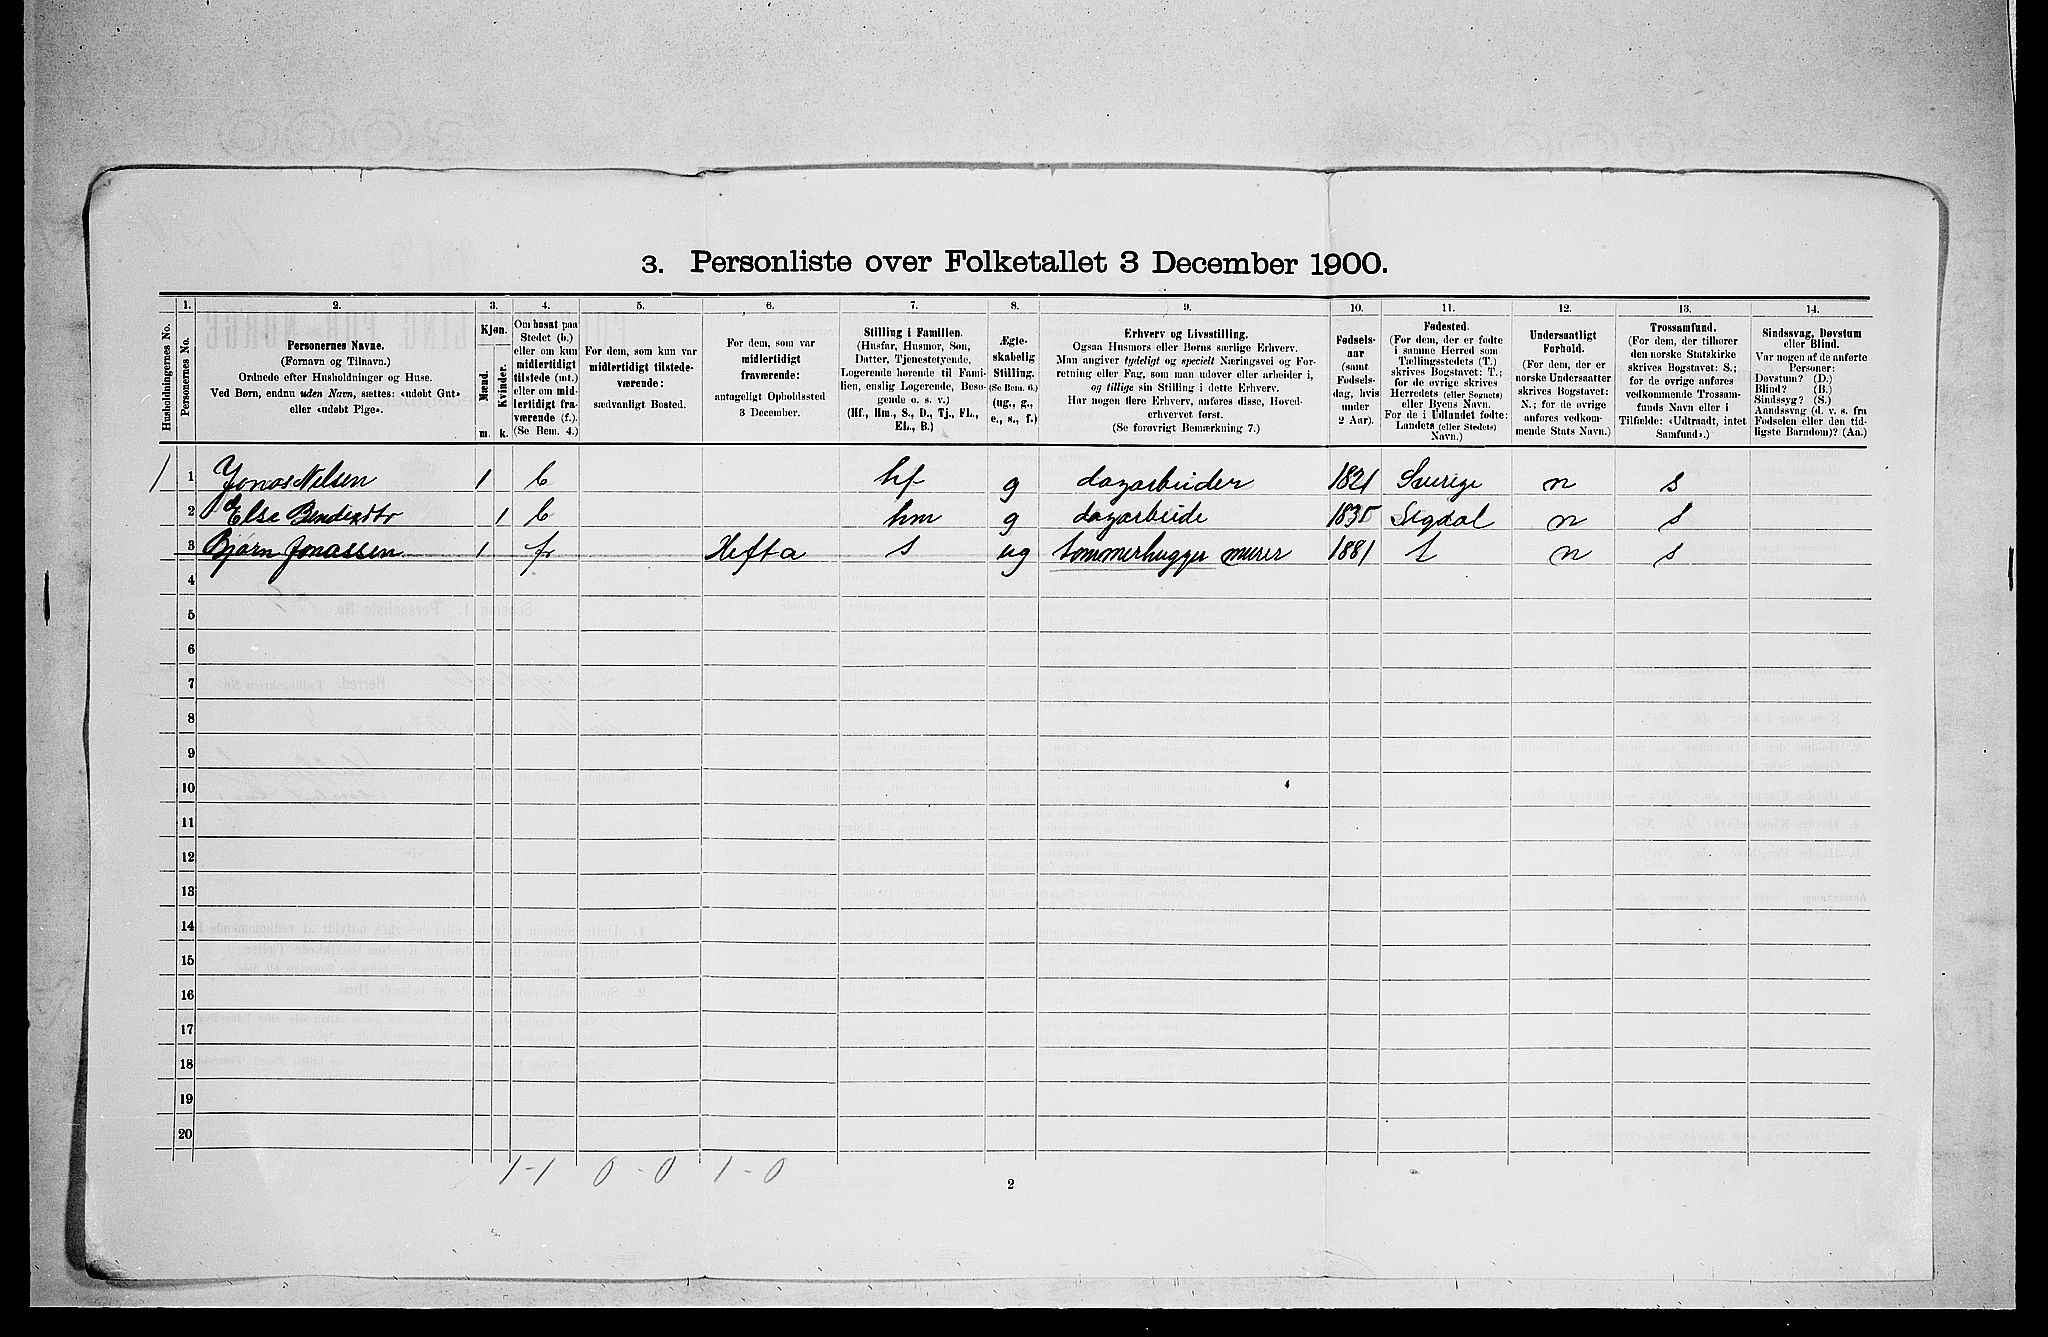 3. Personliste over Folketallet 3 December 1900.
1. 2. 3. 4. 5. 6. 7. 8. 9. 10. 11. 12. 13. 14.
Husholdningernes No.
Personernes No.
Personernes Navne.
(Fornavn og Tilnavn.)
Ordnede efter Husholdninger og Huse.
Ved Børn, endnu uden Navn, sættes: «udøbt Gut»
eller «udøbt Pige».
Kjøn.
Mænd.
Kvinder.
m. k.
Om bosat paa
Stedet (b.)
eller om kun
midlertidigt
tilstede (mt.)
eller om mid-
lertidigt fra-
værende (f.).
(Se Bem. 4.)
For dem, som kun var
midlertidigt tilstede-
værende:
sædvanligt Bosted.
For dem, som var
midlertidigt
fraværende:
antageligt Opholdssted
3 December.
Stilling i Familien.
(Husfar, Husmor, Søn,
Datter, Tjenestetyende,
Logerende hørende til Fami-
lien, enslig Logerende, Besø-
gende o. s. v.)
(Hf., Hm., S., D., Tj., FL.,
EL., B.)
Ægte-
skabelig
Stilling.
(Se Bem. 6.)
(ug., g.,
e., s., f.)
Erhverv og Livsstilling.
Ogsaa Husmors eller Børns særlige Erhverv.
Man angiver tydeligt og specielt Næringsvei og For-
retning eller Fag, som man udøver eller arbeider i,
og tillige sin Stilling i dette Erhverv.
Har nogen flere Erhverv, anføres disse, Hoved-
erhvervet først.
(Se forøvrigt Bemærkning 7.)
Fødsels-
aar
(samt
Fødsels-
dag, hvis
under
2 Aar).
Fødested.
(For dem, der er fødte
i samme Herred som
Tællingsstedets (T.)
skrives Bogstavet: T.;
for de øvrige skrives
Herredets (eller Sognets)
eller Byens Navn.
For de i Udlandet fødte:
Landets (eller Stedets)
Navn.)
Undersaatligt
Forhold.
(For dem, der er
norske Undersaatter
skrives Bogstavet:
N.; for de øvrige
anføres vedkom-
mende Stats Navn.)
Trossamfund.
(For dem, der tilhører
den norske Statskirke
skrives Bogstavet: S.;
for de øvrige anføres
vedkommende Trossam-
funds Navn eller i
Tilfælde: «Udtraadt, intet
Samfund».)
Sindssvag, Døvstum
eller Blind.
Var nogen af de anførte
Personer:
Døvstum? (D.)
Blind? (B.)
Sindssyg? (S.)
Aandssvag (d. v. s. fra
Fødselen eller den tid-
ligste Barndom)? (Aa.)
1 1 Jonas Nelsen 1 b hf g dagarbeider 1821 Sverige n s
2 Else Bendendtr 1 b hm g dagarbeide 1835 Sigdal n s
3 Bjørn Jonassen 1 fr Hefta s ug tømmerhugger murer 1881 t n s
4
5
6
7
8
9
10
11
12
13
14
15
16
17
18
19
20
1-1 0-0 1-0
2